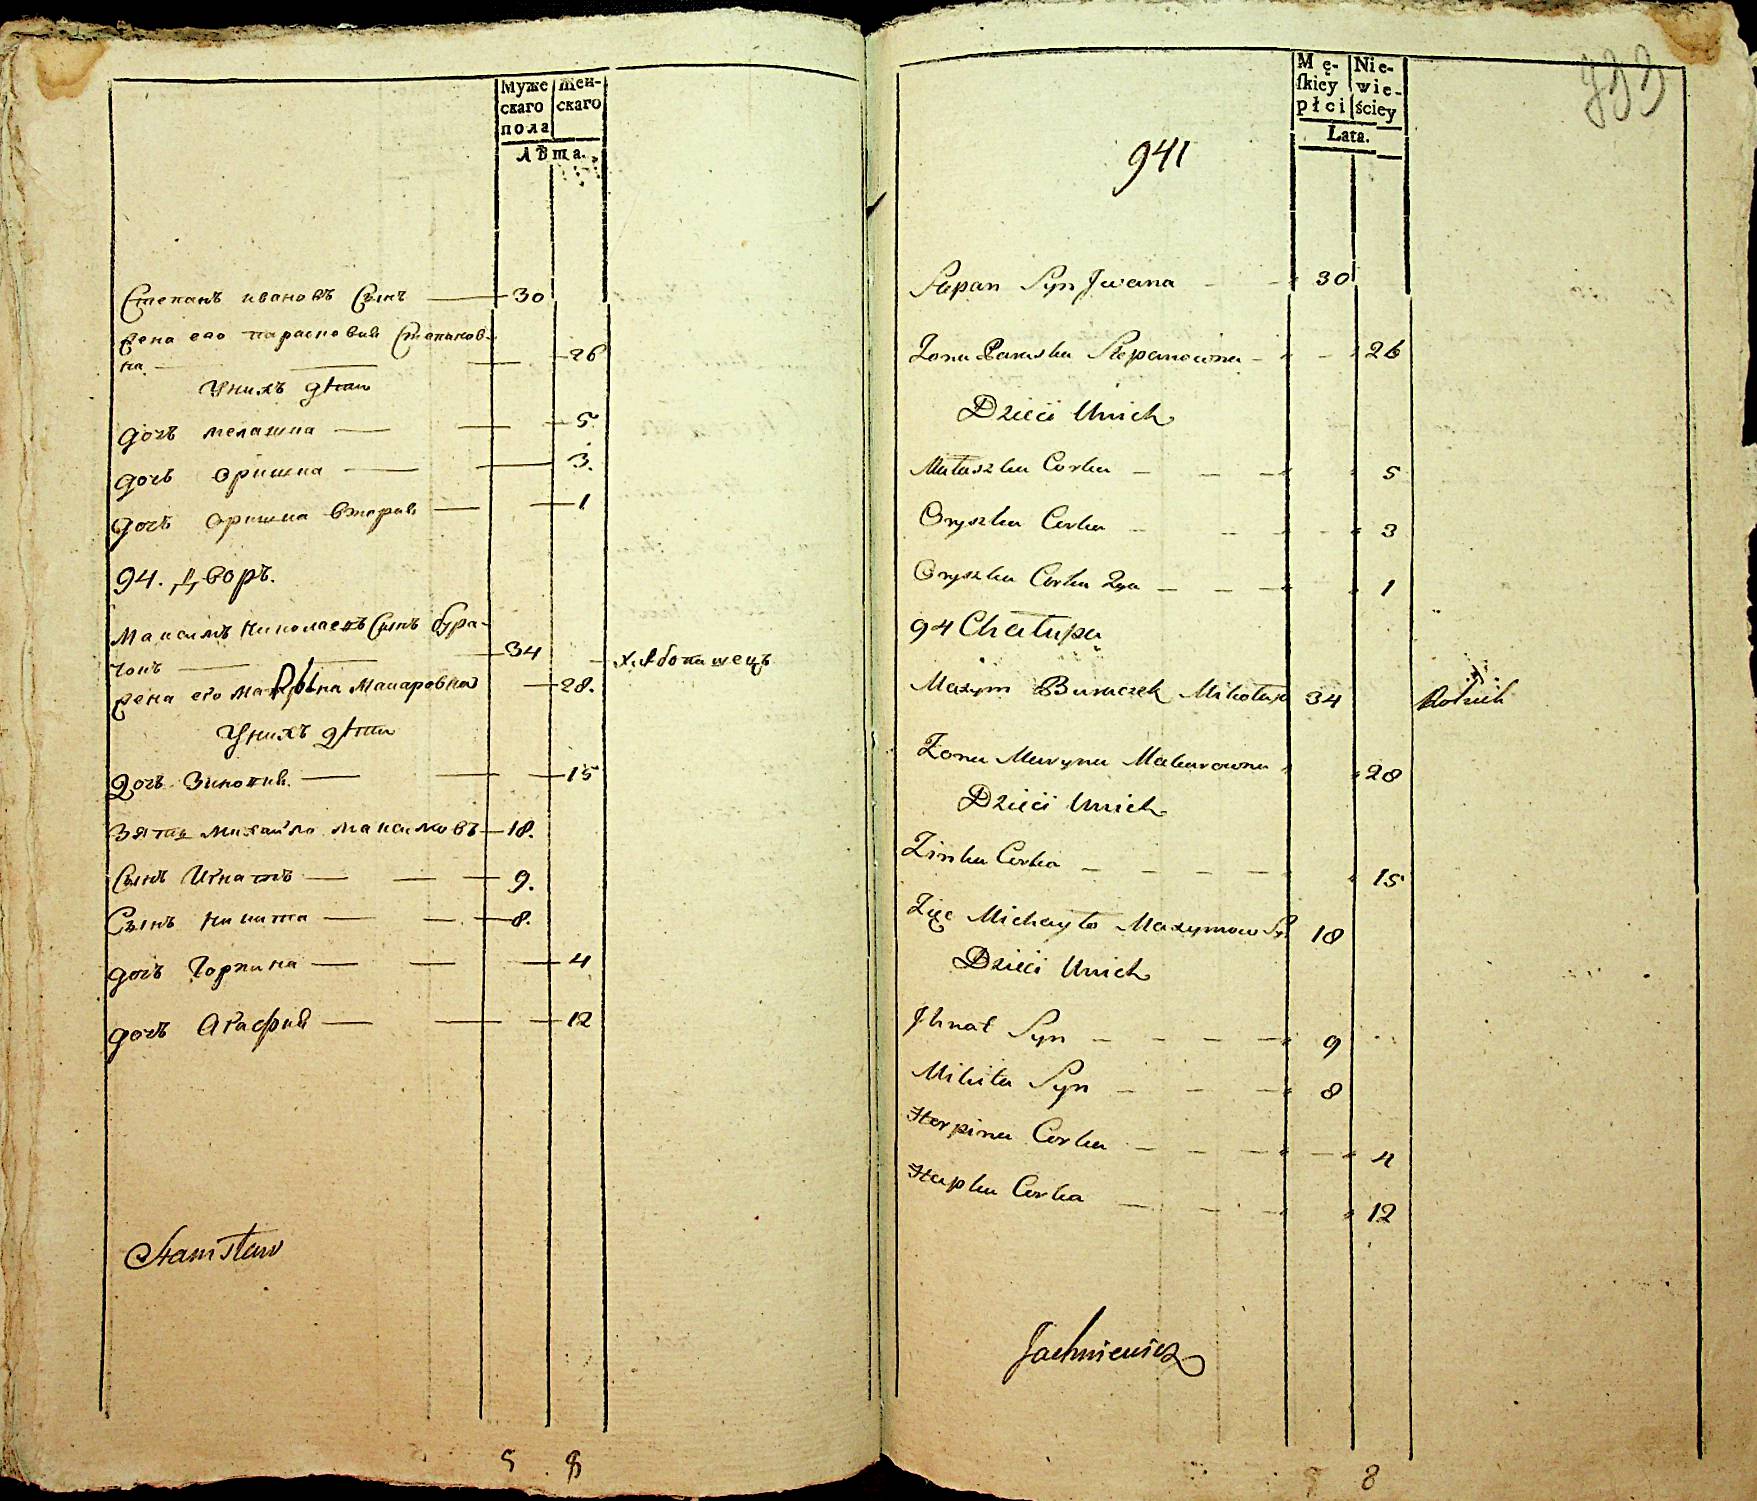 Муже
скаго
пола
Жен-
скаго
Лѣта.
Степанъ ивановъ Сынъ 30
Жена его парасковия Степанов-
на 26
Унихъ дѣти
дочь мелашка 5
дочь оришка 3.
дочь оришка вторая 1
94. Дворъ.
Максимъ Николаевъ Сынъ бура-
чокъ 34 хлѣбопашецъ
Жена его Марына Макаровна 28.
Унихъ дѣти
дочь Зиновия 15
Зять михайло максимовъ 18.
Сынъ Игнатъ 9.
Сынъ Никита 8.
дочь Горпина 4
дочь Агафия 12
Stanisław
5 8
Mę-
skiey
płci
Nie-
wie-
ściey
Lata.
941
Stepan Syn Jwana 30
Zona Paraska Stepanowna 26
Dzieci Unich
Małaszka Corka 5
Oryszka Corka 3
Oryszka Corka 2ga 1
94 Chałupa
Maxym Buraczek Mikołaja 34 Rolnik
Zona Maryna Makarowna 28
Dzieci Unich
Zinka Corka 15
Zięc Michayło Maxymow Syn 18
Dzieci Unich
Jhnat Syn 9
Mikita Syn 8
Horpina Corka 4
Hapka Corka 12
Jachniewicz
5 8